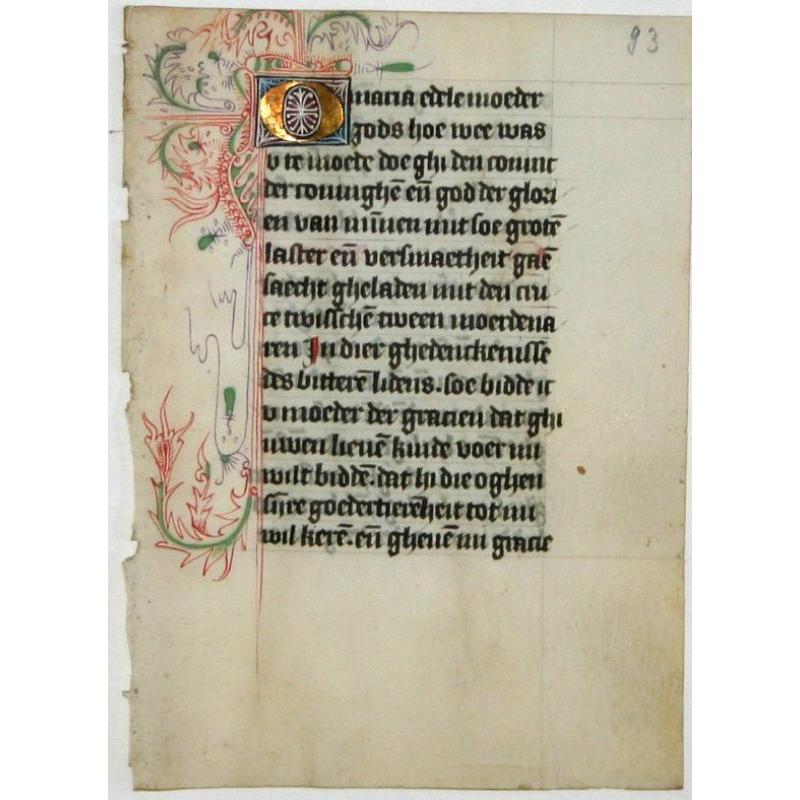 93
O maria edele moeder
gods hoe wee was
v te moede doe ghi den coninc
der coninghē eñ god der glori
en van mīnen mit soe grotē
laster eñ versmaetheit gaē
saecht gheladen mit den cru
ce twisschē tween moerdena
ren In dier ghedenckenisse
des bitterē lidens. soe bidde ic
v moeder der gracien dat ghi
uwen lieuē kinde voer mi
wilt biddē. dat hi die oghen
sijnre goedertierēheit tot mi
wil kerē. eñ gheuē mi gracie